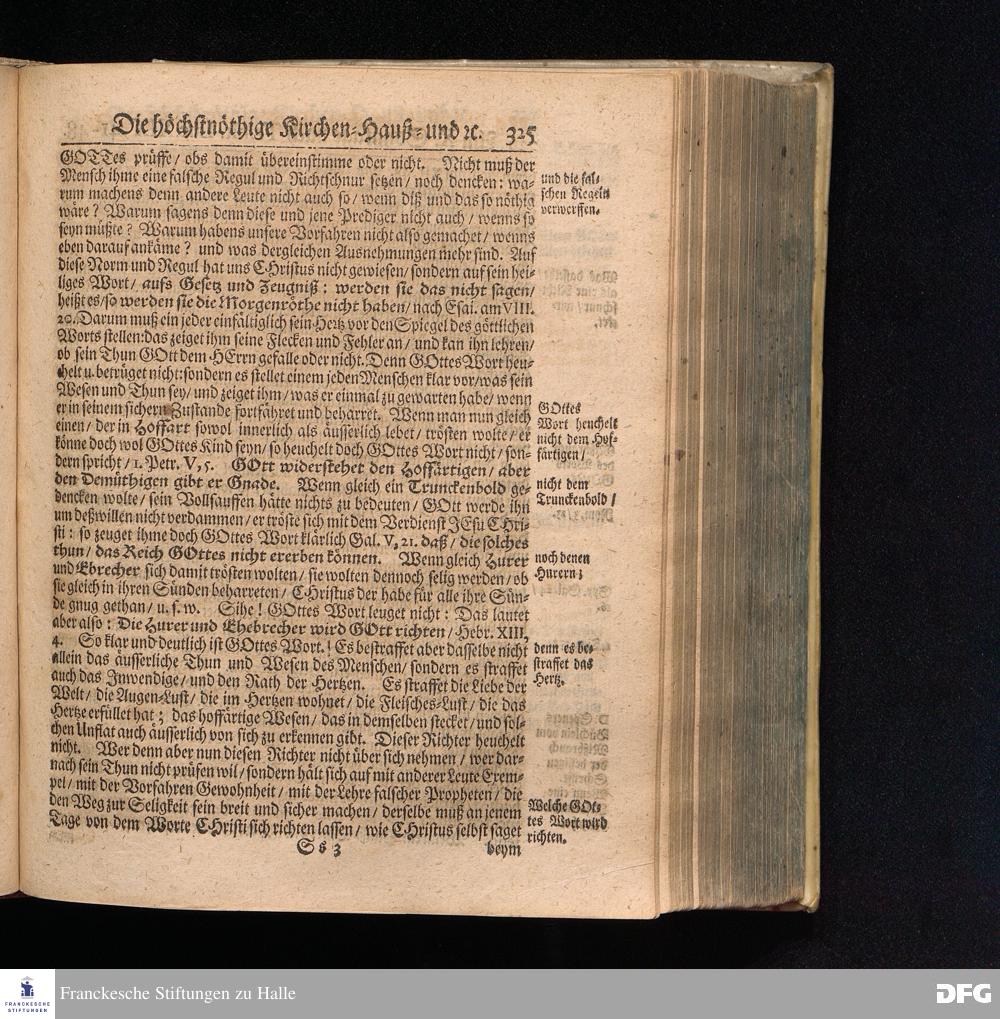 Die höchstnöthige Kirchen-Hauß- und ꝛc. 325
GOTTes prüffe/ obs damit übereinstimme oder nicht. Nicht muß der
Mensch ihme eine falsche Regul und Richtschnur setzen/ noch dencken: wa-
rum machens denn andere Leute nicht auch so/ wenn diß und das so nöthig
wäre? Warum sagens denn diese und jene Prediger nicht auch/ wenns so
seyn müßte? Warum habens unsere Vorfahren nicht also gemachet/ wenns
eben darauf ankäme? und was dergleichen Ausnehmungen mehr sind. Auf
diese Norm und Regul hat uns CHristus nicht gewiesen/ sondern auf sein hei-
liges Wort/ aufs Gesetz und Zeugniß: werden sie das nicht sagen/
heißt es/ so werden sie die Morgenröthe nicht haben/ nach Esai. am VIII.
20. Darum muß ein jeder einfältiglich sein Hertz vor den Spiegel des göttlichen
Worts stellen: das zeiget ihm seine Flecken und Fehler an/ und kan ihn lehren/
ob sein Thun GOtt dem HErrn gefalle oder nicht. Denn GOttes Wort heu-
chelt u. betrüget nicht: sondern es stellet einem jeden Menschen klar vor/ was sein
Wesen und Thun sey/ und zeiget ihm/ was er einmal zu gewarten habe/ wenn
er in seinem sichern Zustande fortfähret und beharret. Wenn man nun gleich
einen/ der in Hoffart sowol innerlich als äusserlich lebet/ trösten wolte/ er
könne doch wol GOttes Kind seyn/ so heuchelt doch GOttes Wort nicht/ son-
dern spricht/ 1. Petr. V, 5. GOtt widerstehet den Hoffärtigen/ aber
den Demüthigen gibt er Gnade. Wenn gleich ein Trunckenbold ge-
dencken wolte/ sein Vollsauffen hätte nichts zu bedeuten/ GOtt werde ihn
um deßwillen nicht verdammen/ er tröste sich mit dem Verdienst JEsu CHri-
sti: so zeuget ihme doch GOttes Wort klärlich Gal. V, 21. daß/ die solches
thun/ das Reich GOttes nicht ererben können. Wenn gleich Hurer
und Ebrecher sich damit trösten wolten/ sie wolten dennoch selig werden/ ob
sie gleich in ihren Sünden beharreten/ CHristus der habe für alle ihre Sün-
de gnug gethan/ u. s. w. Sihe! GOttes Wort leuget nicht: Das lautet
aber also: Die Hurer und Ehebrecher wird GOtt richten/ Hebr. XIII,
4. So klar und deutlich ist GOttes Wort! Es bestraffet aber dasselbe nicht
allein das äusserliche Thun und Wesen des Menschen/ sondern es straffet
auch das Inwendige/ und den Rath der Hertzen. Es straffet die Liebe der
Welt/ die Augen-Lust/ die im Hertzen wohnet/ die Fleisches-Lust/ die das
Hertze erfüllet hat; das hoffärtige Wesen/ das in demselben stecket/ und sol-
chen Unflat auch äusserlich von sich zu erkennen gibt. Dieser Richter heuchelt
nicht. Wer denn aber nun diesen Richter nicht über sich nehmen/ wer dar-
nach sein Thun nicht prüfen wil/ sondern hält sich auf mit anderer Leute Exem-
pel/ mit der Vorfahren Gewohnheit/ mit der Lehre falscher Propheten/ die
den Weg zur Seligkeit sein breit und sicher machen/ derselbe muß an jenem
Tage von dem Worte CHristi sich richten lassen/ wie CHristus selbst saget
Ss 3 beym
und die fal-
schen Regeln
verwerffen.
GOttes
Wort heuchelt
nicht dem Hof-
färtigen/
nicht dem
Trunckenbold/
noch denen
Hurern;
denn es be-
straffet das
Hertz.
Welche GOt-
tes Wort wird
richten.
FRANCKESCHE
STIFTUNGEN
Franckesche Stiftungen zu Halle
DFG